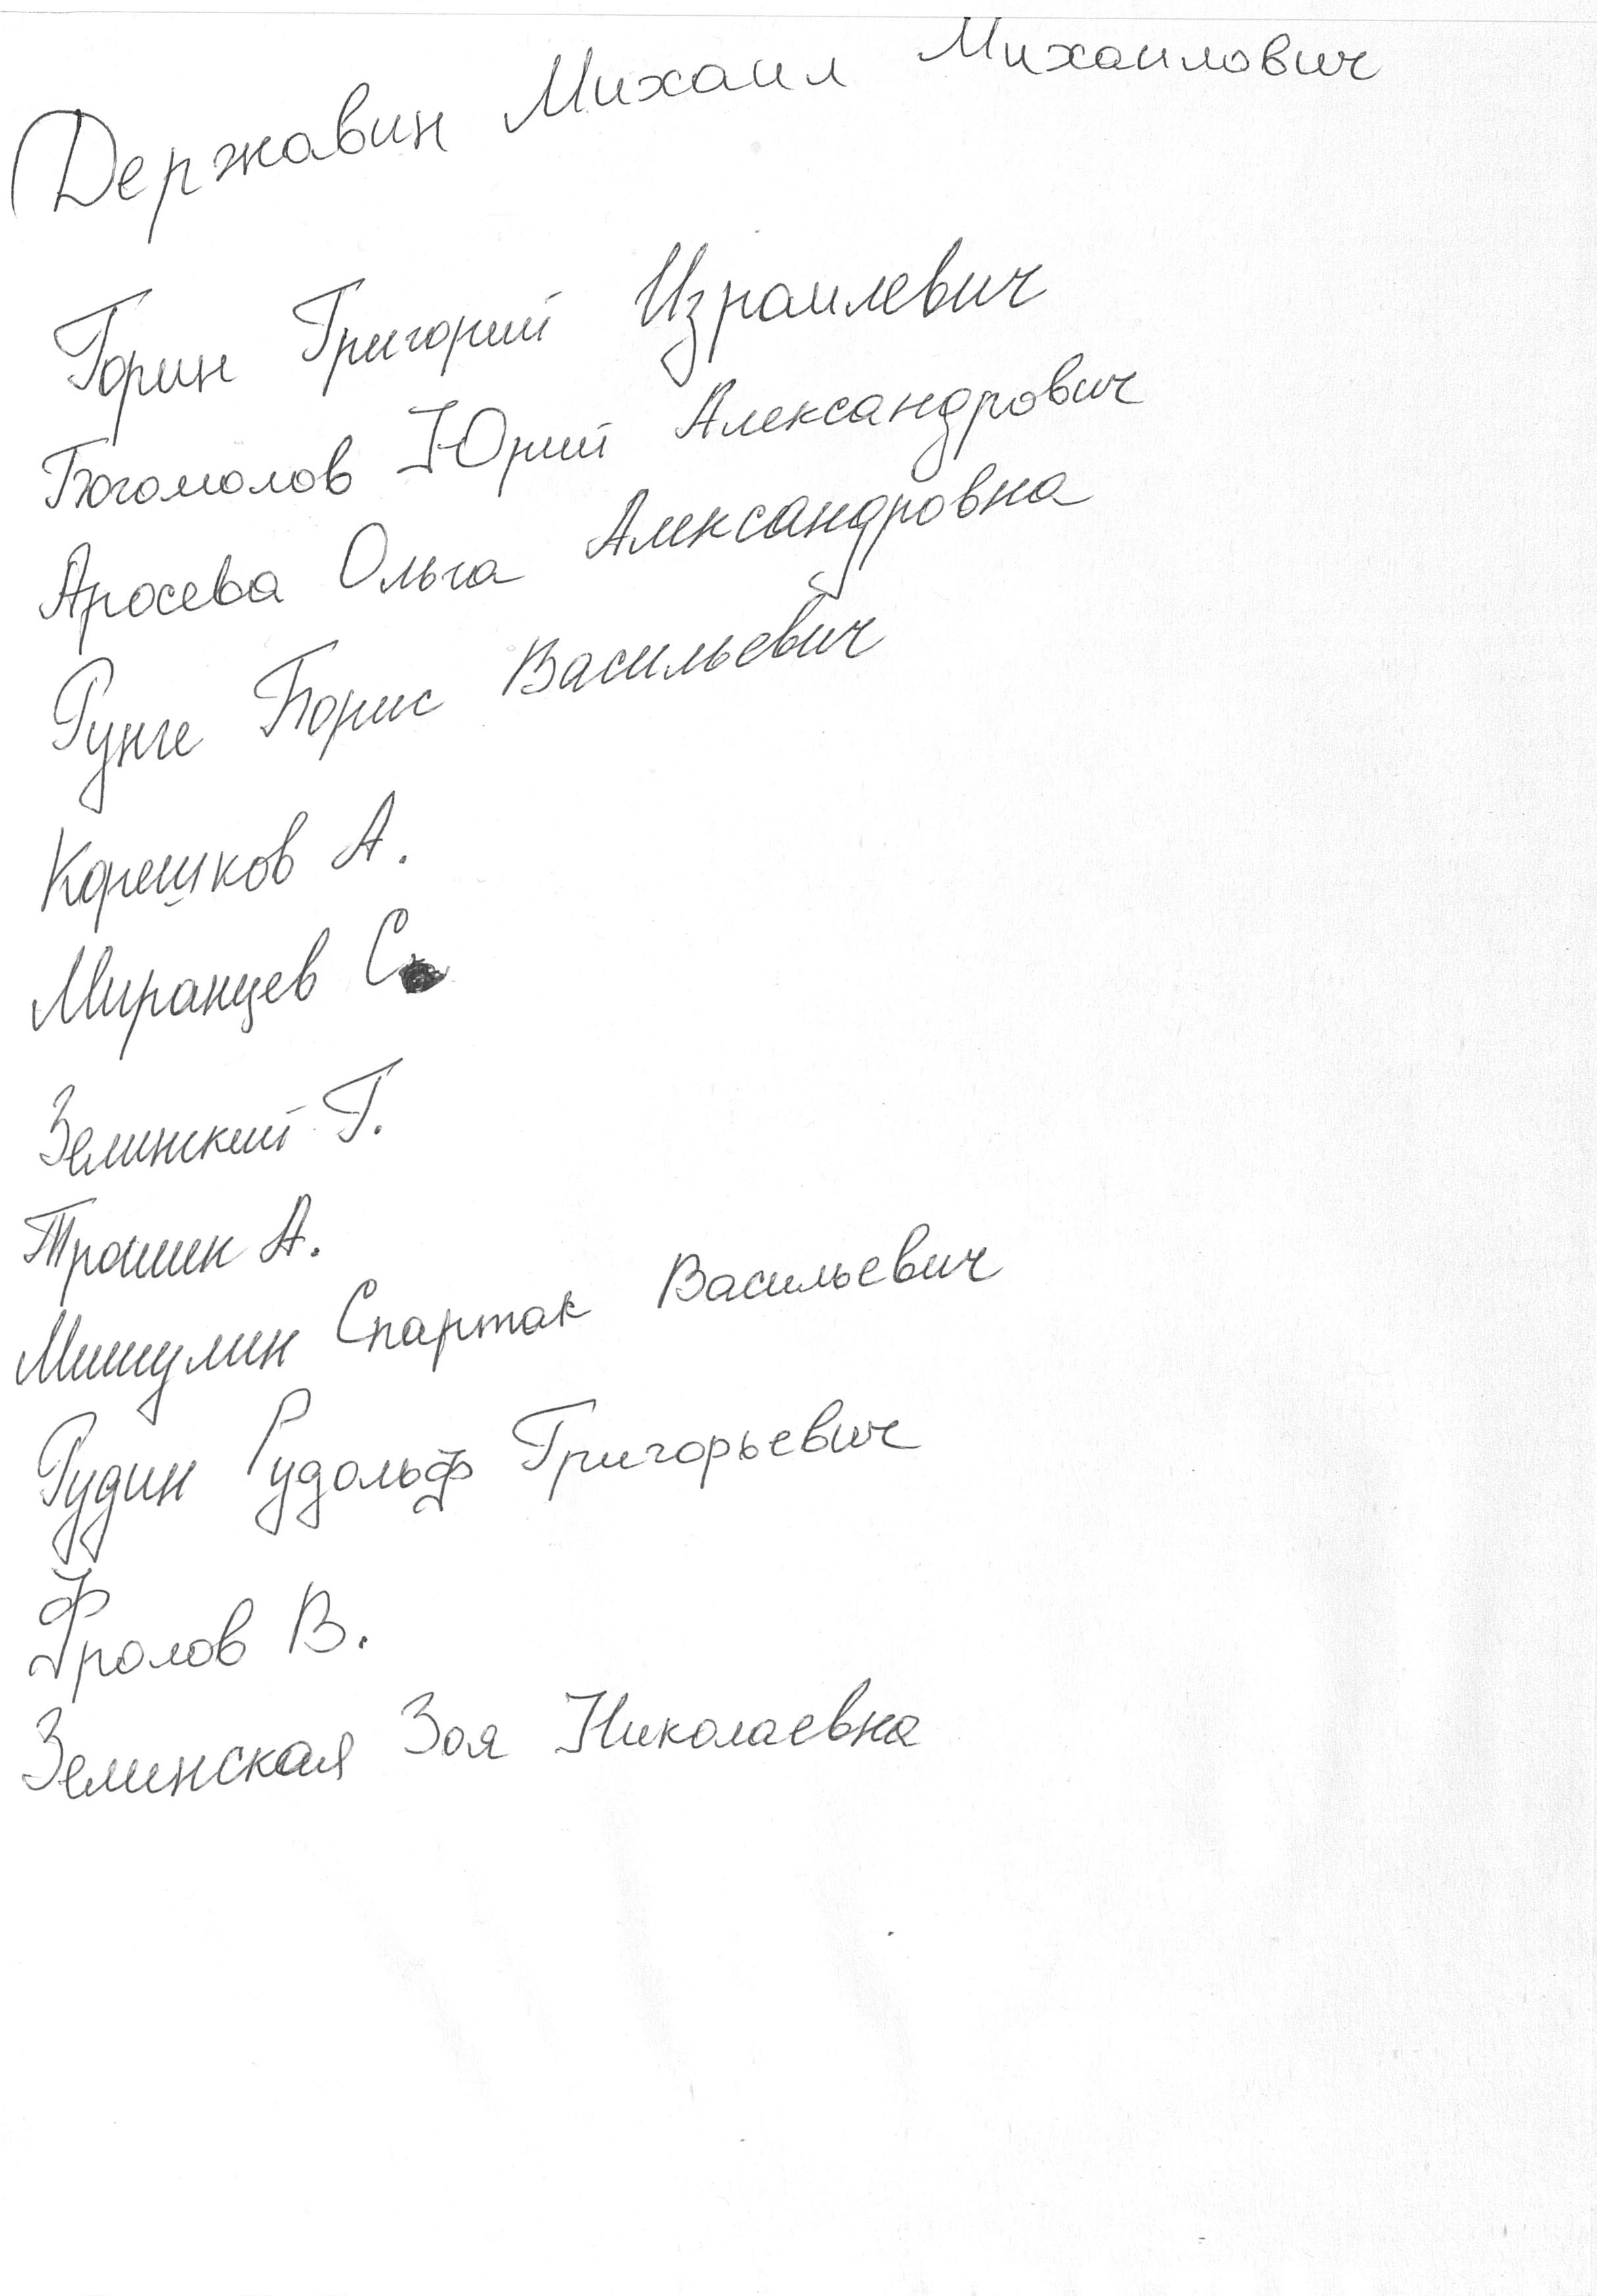 Державин Михаил Михайлович
Горин Григорий Израилевич
Богомолов Юрий Александрович
Аросева Ольга Александровна
Рунге Борис Васильевич
Корешков А.
Миранцев С.
Зелинский Г.
Трошин А.
Мишулин Спартак Васильевич
Рудин Рудольф Григорьевич
Фролов В.
Зелинская Зоя Николаевна